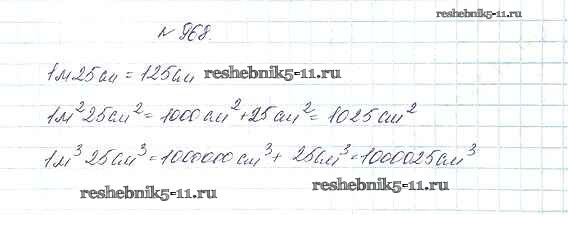 reshebnik5-11.ru
№968.
1м25см = 125см reshebnik5-11.ru
1м²25см² = 1000см² + 25см² = 1025см²
1м³25см³ = 1000000см³ + 25см³ = 1000025см³
reshebnik5-11.ru reshebnik5-11.ru